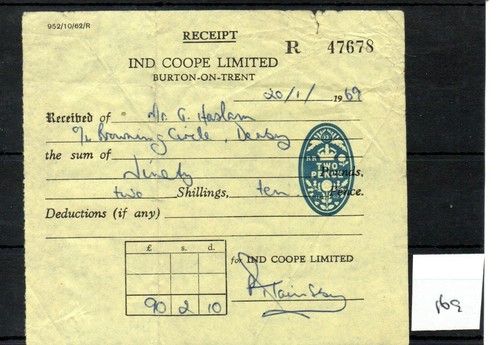 952/10/62/R
RECEIPT
R 47678
IND COOPE LIMITED
BURTON-ON-TRENT
20/1/ 1969
Received of Mr. G. Haslam
Browning Circle, Derby
the sum of
Ninety Pounds,
two Shillings, ten Pence.
TWO
PENCE
Deductions (if any)
£ s. d.
90 2 10
for IND COOPE LIMITED
169